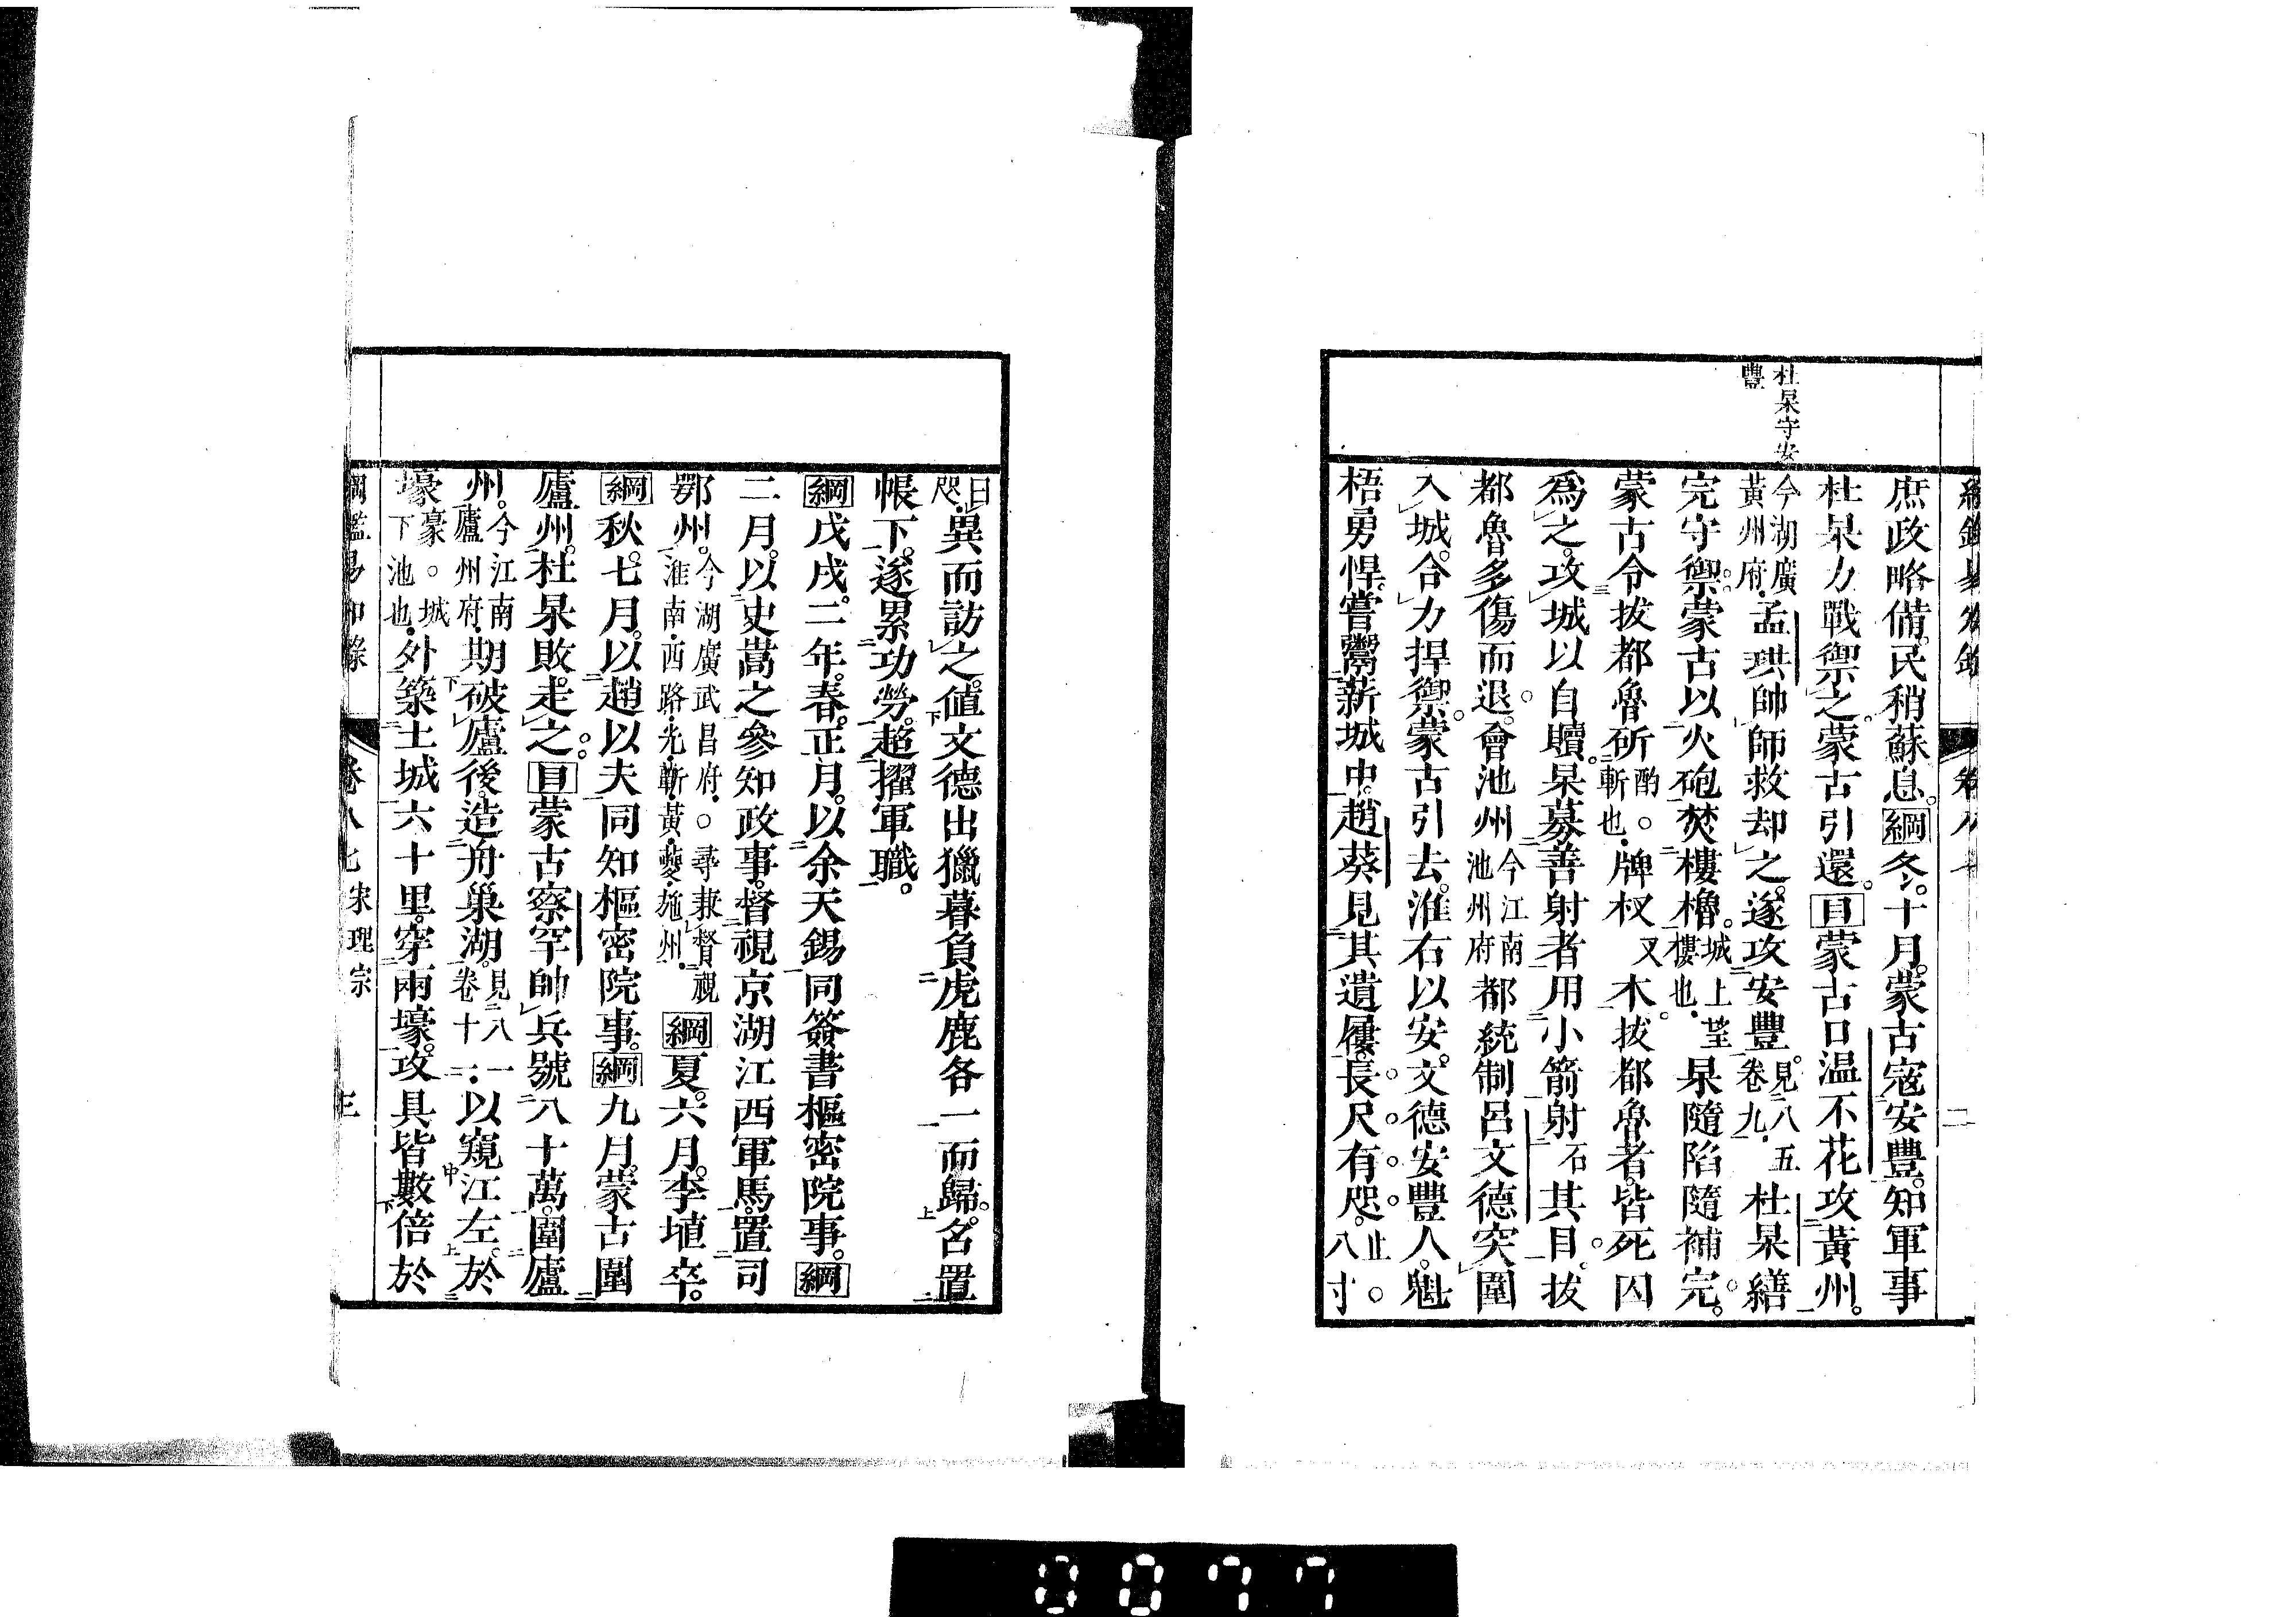 杜杲守安
豐
庶政略備。民稍蘇息。綱冬。十月。蒙古寇安豐。知軍事
杜杲力戰禦之。蒙古引還。目蒙古口温不花攻黃州。
今湖廣黃州府。孟珙帥師救却之。遂攻安豐。見八五卷九。杜杲繕
完守禦。蒙古以火砲焚樓櫓。城上望樓也。杲隨陷隨補完。
蒙古令拔都魯斫酌。斬也。牌杈叉木。拔都魯者。皆死囚
爲之。攻城以自贖。杲募善射者用小箭射石其目。拔
都魯多傷而退。會池州今江南池州府都統制呂文德突圍
入城。合力捍禦。蒙古引去。淮右以安。文德安豐人。魁
梧勇悍。嘗鬻薪城中。趙葵見其遺屨。長尺有咫。止。八寸
曰咫。異而訪之。値文德出獵。暮負虎鹿各一而歸。名置
帳下。遂累功勞。超擢軍職。
綱戊戌。二年。春。正月。以余天錫同簽書樞密院事。綱
二月。以史嵩之參知政事。督視京湖江西軍馬。置司
鄂州。今湖廣武昌府。○尋兼督視淮南西路光蘄黃夔施州。綱夏。六月。李埴卒。
綱秋。七月。以趙以夫同知樞密院事。綱九月。蒙古圍
廬州。杜杲敗走之。目蒙古察罕帥兵號八十萬。圍廬
州。今江南廬州府。期破廬後。造舟巢湖。見八一卷十二。以窺江左。於
壕豪。城下池也。外築土城六十里。穿兩壕。攻具皆數倍於
綱鑑易知錄 卷八七 宋理宗 三